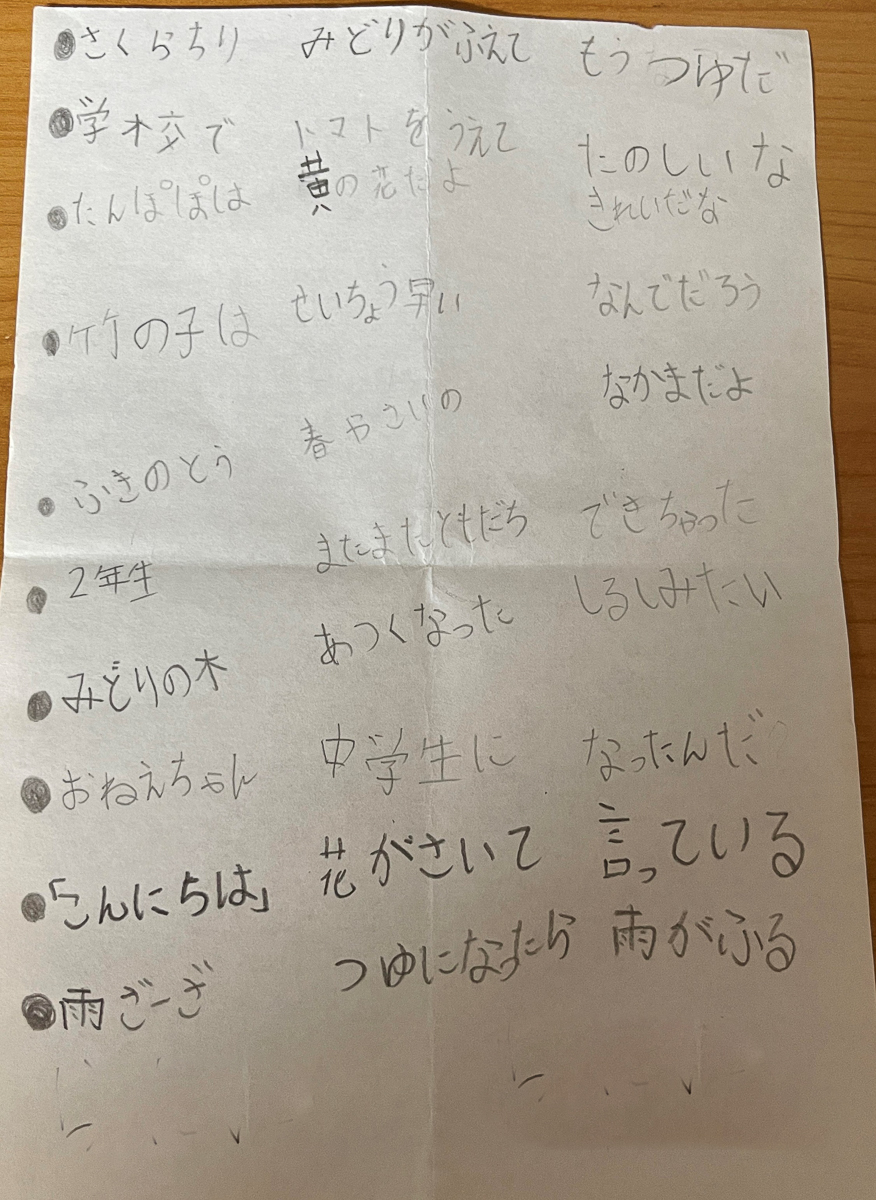 ●さくらちり みどりがふえて もうつゆだ
●学校で トマトをうえて たのしいな
●たんぽぽは 黄の花だよ きれいだな
●竹の子は せいちょう早い なんでだろう
●ふきのとう 春やさいの なかまだよ
●2年生 またまたともだち できちゃった
●みどりの木 あつくなった しるしみたい
●おねえちゃん 中学生に なったんだ
●「こんにちは」 花がさいて 言っている
●雨ざーざ つゆになったら 雨がふる